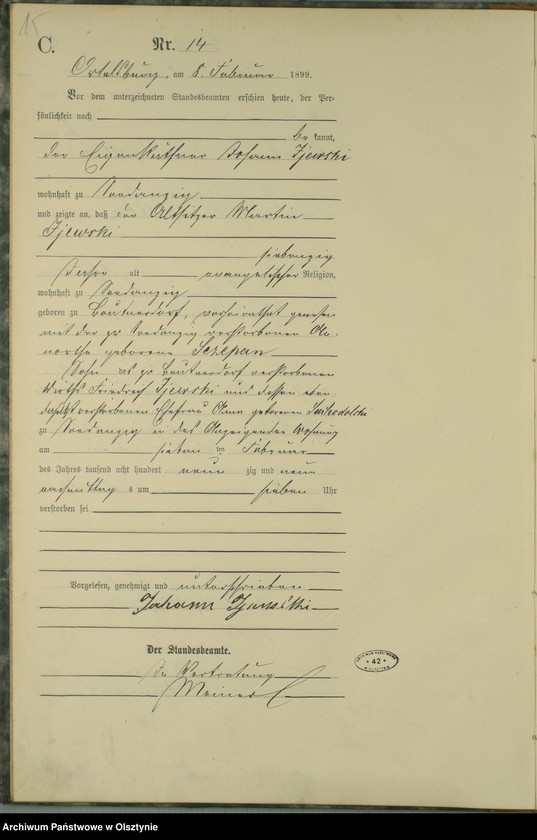 15
C.
Nr. 14
Ortelsburg, am 8. Februar 1899.
Vor dem unterzeichneten Standesbeamten erschien heute, der Per-
sönlichkeit nach
be kannt,
der Eigenkäthner Johann Jjewski
wohnhaft zu Seedanzig
und zeigte an, daß der Altsitzer Martin
Jjewski
siebenzig
Jahre alt evangelischer Religion,
wohnhaft zu Seedanzig
geboren zu Beutnerdorf, verheirathet gewesen
mit der zu Seedanzig verstorbenen
geborene Sczepan
Sohn des zu Beutnerdorf verstorbenen
Wirths Friedrich Jjewski und dessen eben
daselbst verstorbenen Ehefrau geborenen Suchodolska
zu Seedanzig in des Anzeigenden Wohnung
am sieben ten Februar
des Jahres tausend acht hundert neun zig und neun
vormittag s um sieben Uhr
verstorben sei
Vorgelesen, genehmigt und unterschrieben
Johann Jjewski
Der Standesbeamte.
In Vertretung
42
Archiwum Państwowe w Olsztynie